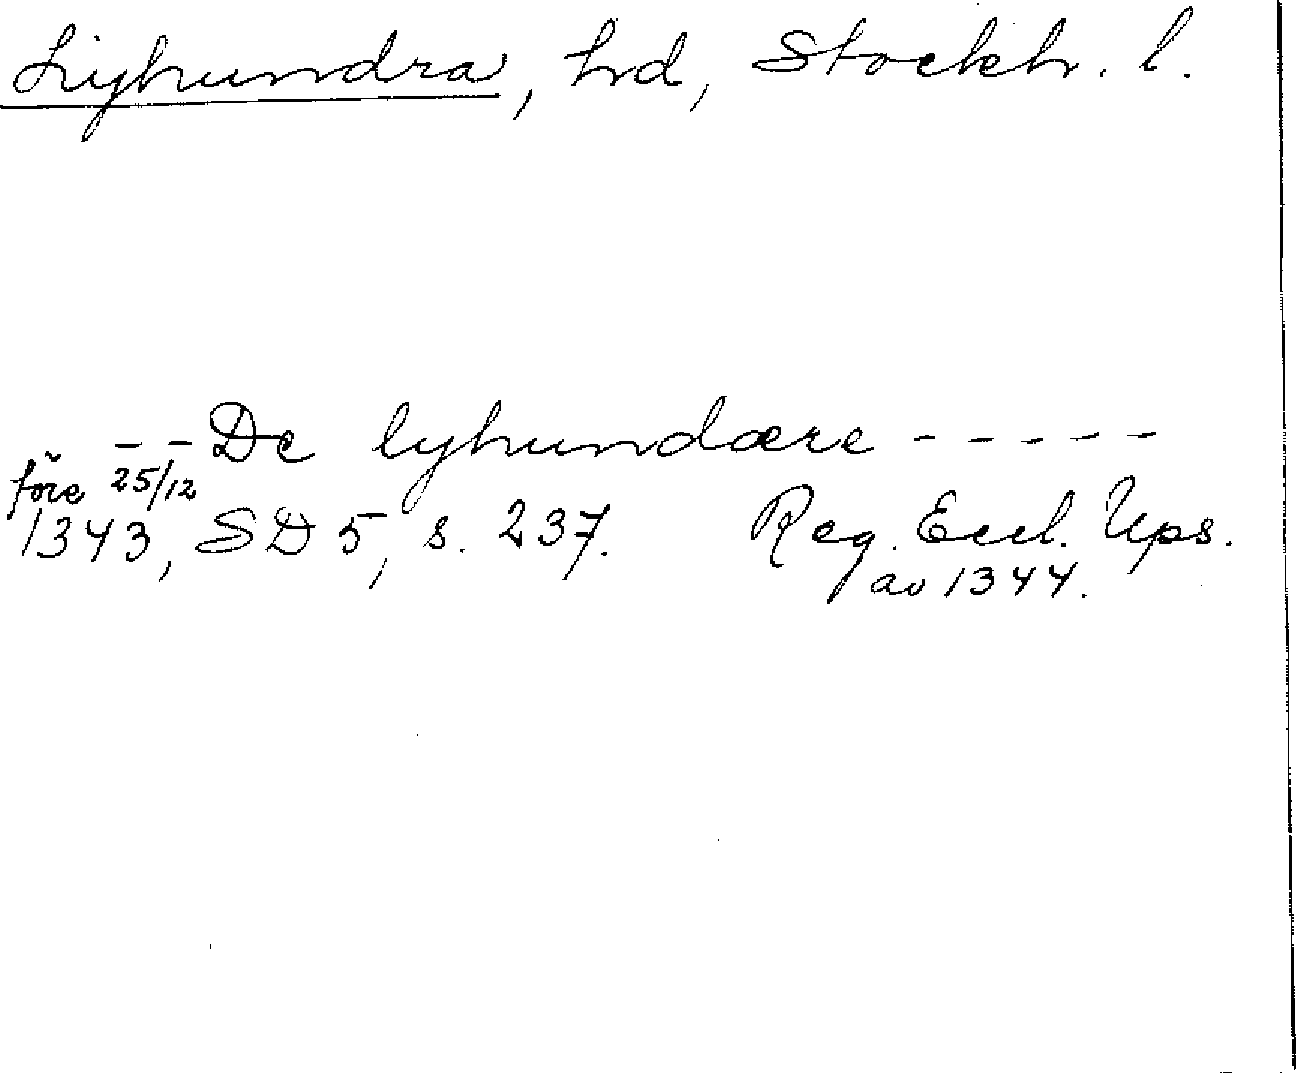 Lyhundra, hd, Stockh. l.
- - De lyhundære - - - - -
före 25/12
1343, SD 5, s. 237. Reg. Eccl. Ups.
av 1344.